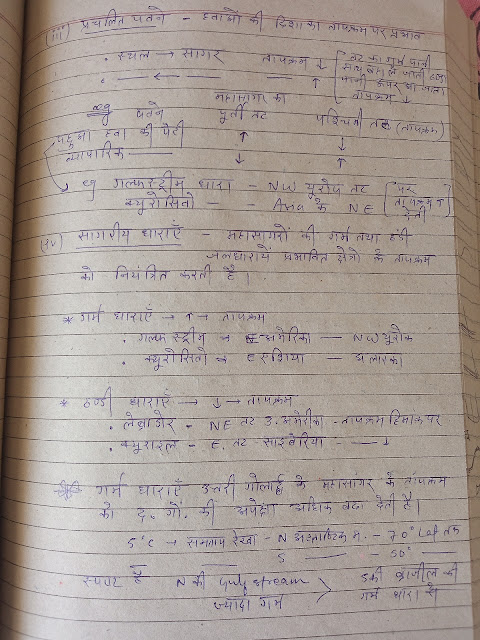 (iii) प्रचलित पवनें - हवाओं की दिशा का तापक्रम पर प्रभाव
. स्थल → सागर तापक्रम ↓ [तट का गर्म पानी
सागर
पानी ऊपर आ जाता
तापक्रम ↓]
. — ← — ↑
eg पवनें महासागर का पूर्वी तट पश्चिमी तट (तापक्रम)
पछुआ हवा की पेटी ↑ ↓
व्यापारिक — ↓ ↑
eg गल्फस्ट्रीम धारा - NW यूरोप तट [पर
क्यूरोसिवो — - Asia के NE तापक्रम ↑
देती]
(iv) सागरीय धाराएँ - महासागरों की गर्म तथा ठंडी
जलधारायें प्रभावित क्षेत्रों के तापक्रम
को नियंत्रित करती है।
* गर्म धाराएँ → ↑ → तापक्रम
. गल्फ स्ट्रीम → E अमेरिका — NW यूरोप
. क्यूरोसिवो → E एशिया — अलास्का
* ठण्डी धाराएँ → ↓ → तापक्रम
. लेब्राडोर - NE तट उ. अमेरिका - तापक्रम हिमांक पर
. क्यूराइल - E. तट साइबेरिया - — ↓
गर्म धाराएँ उत्तरी गोलार्द्ध के महासागर के तापक्रम
को द. गो. की अपेक्षा अधिक बढा देती है।
5°C → समताप रेखा - N अटलांटिक म. - 70° Lat तक
S — - 50° —
स्पष्ट है N की Gulf stream > S की ब्राजील की
ज्यादा गर्म गर्म धारा से